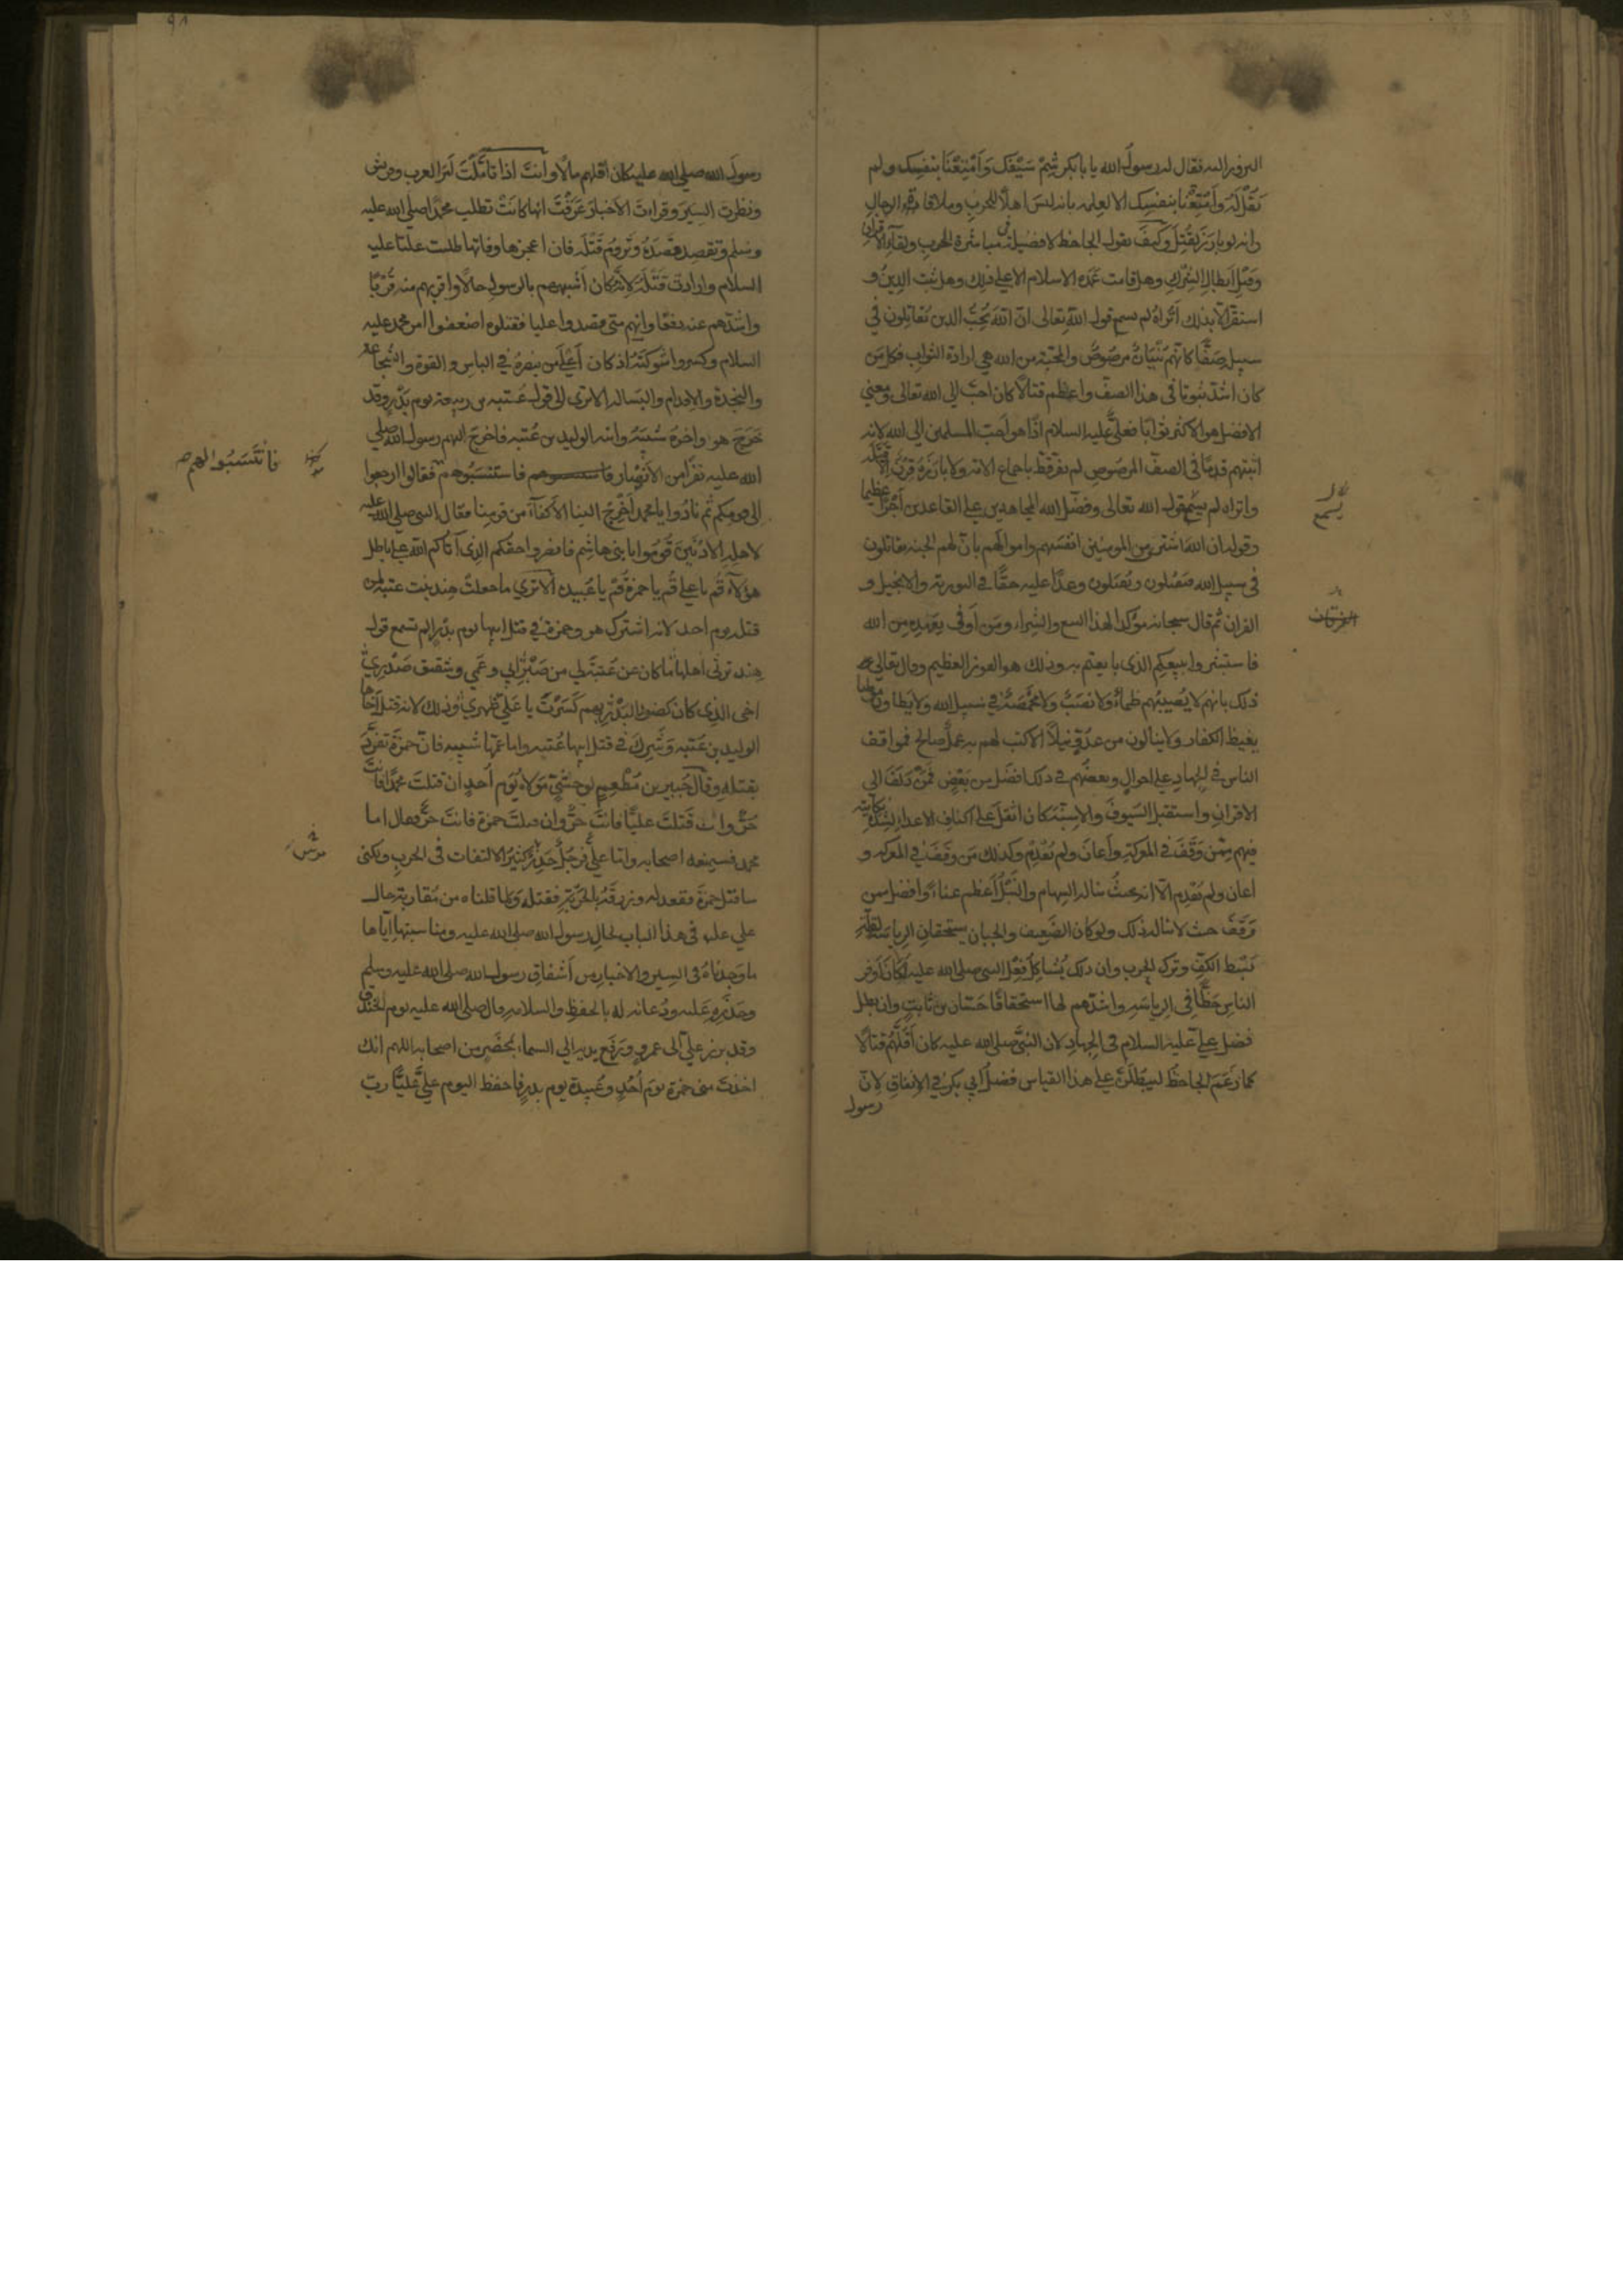 البروز اليه فقال له رسول الله يا با بكر شِمْ سَيْفَك وَأَمْتِعْنَا بنفسِك ولم
يَقُلْ لَهُ وَأَمْتِعْنا بنفسِك الا لعلمه بانه ليسَ اهلاً للحربِ وملاقاة الرجالِ
وانه لو بارَزَ لقُتِلَ وكيفَ يقول الجاحظ لا فضيلة في مباشرة الحربِ ولقآء الاقران
وقَتْلِ ابطالِ الشِرْكِ وهل قامت عُمُد الاسلام الا على ذلك وهل ثبت الدِينُ و
استقرّ الا بذلك أَتُراهُ لم يسمع قول الله تعالى انّ اللهَ يُحِبُّ الذين يُقاتِلون في
سبيلِه صَفًّا كانّهم بُنْيَانٌ مرصُوصٌ والمحبّة من الله هي ارادة الثواب فكل مَن
كان اشدّ ثبوتا في هذا الصفّ واعظم قتالاً كان احبَّ الى الله تعالى ومعنى
الافضل هو الاكثر ثوابًا فعليٌّ عليه السلام اذًا هو أحبّ المسلمين الى الله لانه
اثبتهم قدمًا في الصفّ المرصُوصِ لم يفرّ قطّ باجماع الامّة ولا بارَزَهُ قِرْنٌ إلّا قتله
واتراه لم يسمع قول الله تعالى وفضّل الله المجاهدين على القاعدين أَجْرًا عظيما
وقوله ان اللهَ اشترى من المومنين انفسَهم واموالَهم بانّ لهم الجنة يقاتلون
في سبيل الله فيَقْتُلون ويُقتَلون وعدًا عليه حقًّا في التورية والانجيل و
القران ثم قال سبحانه مؤكدا لهذا البيع والشِراءِ ومَن أَوفى بعَهدِه مِن الله
فاستبشروا ببيعِكم الذي بايعتم به وذلك هو الفوز العظيم وقال تعالى
ذلك بانهم لا يُصيبُهم ظمأٌ ولا نصَبٌ ولا مخمصَةٌ في سبيل الله ولا يَطَاون موطئا
يغيظ الكفار ولا ينالون من عدُوّ نيلاً الا كتب لهم به عملٌ صالح فمواقف
الناس في الجهادِ على احوالٍ وبعضُهم في ذلك افضَل من بعضٍ فمَنْ دَلَفَ الى
الاقرانِ واستقبل السّيوفَ والاسِنّة كان اثقلَ على اكتافِ الاعداءِ لشدّة نكايته
فيهم مِمّن وَقَفَ في المعركةِ وأعانَ ولم يُقْدِم وكذلك مَن وَقَفَ في المعركة و
اعان ولم يُقْدِم الا انه بحيثُ تناله السِهام والنَبْلُ أعظم عناءً وافضل ممن
وَقَفَ حيث لا يناله ذلك ولو كان الضَعيف والجبان يستحقان الرياسَة بقلّة
بَسْط الكفِّ وترك الحرب وان ذلك يُشاكِلُ فِعْلَ النبي صلى الله عليه لكانَ أوفر
الناسِ حَظًّا في الرياسَةِ واشدّهم لها استحقاقًا حَسّان بن ثابتٍ وان بطل
فضل عليّ عليه السلام في الجهادِ لان النبيَّ صلى الله عليه كان أَقلَّهُم قتالًا
كما زَعَمَ الجاحظ ليَبْطُلَنَّ على هذا القياس فضلُ ابي بكرٍ في الانفاقِ لانّ
رسول
لا
يسمع
الفرقان
رسولَ الله صلى الله عليه كان أقلهم مالًا وأنتَ اذا تأمّلْتَ أمرَ العرب وقريش
ونظرت السِيَرَ وقراتَ الأخبارَ عَرَفْتَ انها كانَتْ تطلب محمدًا صلى الله عليه
وسلم وتقصد قَصْدَهُ وتَرُومُ قَتْلَه فان اعجزها وفاتها طلبت عليّا عليه
السلام وارادت قَتْلَهُ لانّه كان أَشْبَههم بالرسولِ حالًا واقربهم منه قُرْبًا
واشدّهم عنه دفعًا وانهم متى قصدوا عليا فقتلوه اضعفوا امر محمد عليه
السلام وكسروا شوكتَهُ اذ كان أَعْلَى من ينصرُهُ في الباسِ والقوة والشجاعة
والنجدة والإقدام والبَسالة الا ترى الى قول عتبة بن ربيعة يوم بَدْرٍ وقد
خَرَجَ هو واخوهُ شَيْبَةُ وابنه الوليد بن عُتبه فاخرج اليهم رسول الله صلى
الله عليه نفَرًا من الأنصار فاستنسَبُوهم فقالوا ارجعوا
الى قومكم ثم نادُوا يا محمد أَخْرِجْ الينا الأكفآءَ من قومِنا فقال النبي صلى الله عليه
لاهلِهِ الأدْنَيْنَ قُومُوا يا بني هاشِم فانصروا حقكم الذي آتاكم الله على باطل
هؤلآءِ قُم يا علي قُم يا حمزةُ قُمْ يا عُبيدة ألا ترى ما جعلتْ هِند بنت عتبة لمن
قتله يوم احدٍ لانه اشترك هو وحمزة في قتل ابيها يوم بَدْرٍ الم تسمع قول
هِند ترثي اهلها ما كان عن عُتبةَ لي من صَبْرٍ ابي وعَمّي وشقيق صَدْري
اخي الذي كان كضوءِ البَدْرِ بهم كَسَرْتَ يا عَليُّ ظَهري وذلك لانه قتل أخاها
الوليد بن عُتبه وَشَرِكَ في قتل ابيها عُتبه واما عَمُّها شَيبه فانّ حمزةَ تفرَّدَ
بقتله وقال جُبير بن مُطْعِمٍ لوحشيٍّ مَولاهُ يَوْم أُحدٍ ان قتلتَ محمدًا فانتَ
حُرٌّ وان قَتَلتَ عليًّا فانتَ حُرٌّ وان قتلتَ حمزة فانتَ حُرٌّ فقال اما
محمد فسيمنعه اصحابه وأمّا عليٌّ فرجُلٌ حَذِرٌ كثيرُ الالتفات في الحربِ ولكني
ساقتل حمزةَ فقعد له وزرقَهُ بالحَرْبَةِ فقتله ولِما قلناه من مُقاربة حال
علي عليه في هذا الباب لحالِ رسول الله صلى الله عليه ومناسبتها اياها
ما وَجدناهُ في السِيَرِ والاخبارِ من أَشْفاقِ رسول الله صلى الله عليه وسلم
وحَذَرِهِ عَليه ودُعائه له بالحفظِ والسلامةِ قال صلى الله عليه يوم الخندق
وقد بَرزَ عليٌّ الى عمروٍ ورَفَع يديه الى السماء بمَحْضَرٍ من اصحابه اللهم انك
اخذتَ منى حمزة يومَ أُحُدٍ وعُبيدة يوم بدرٍ فاحفظ اليوم عليَّ عَليًّا ربِّ
فانتَسَبُوا لهم